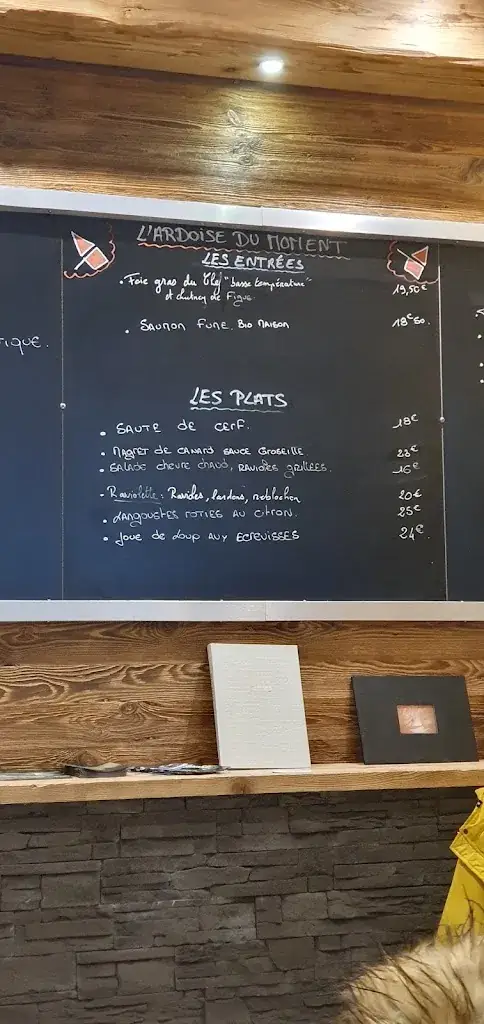 L'ARDOISE DU MOMENT
LES ENTRÉES
• Foie gras du Chef "basse température" 19,50€
et chutney de Figue
• SAUMON FUMÉ BIO MAISON 18€50.
TIQUE.
LES PLATS
• SAUTE DE CERF. 18€
• MAGRET DE CANARD SAUCE GROSEILLE 23€
• SALADE CHEVRE CHAUD, RAVIOLES GRILLÉES. 16€
- Raviolette : Ravioles, lardons, reblochon 20€
• LANGOUSTES ROTIES AU CITRON. 25€
• JOUE DE LOUP AUX ECREVISSES 24€.